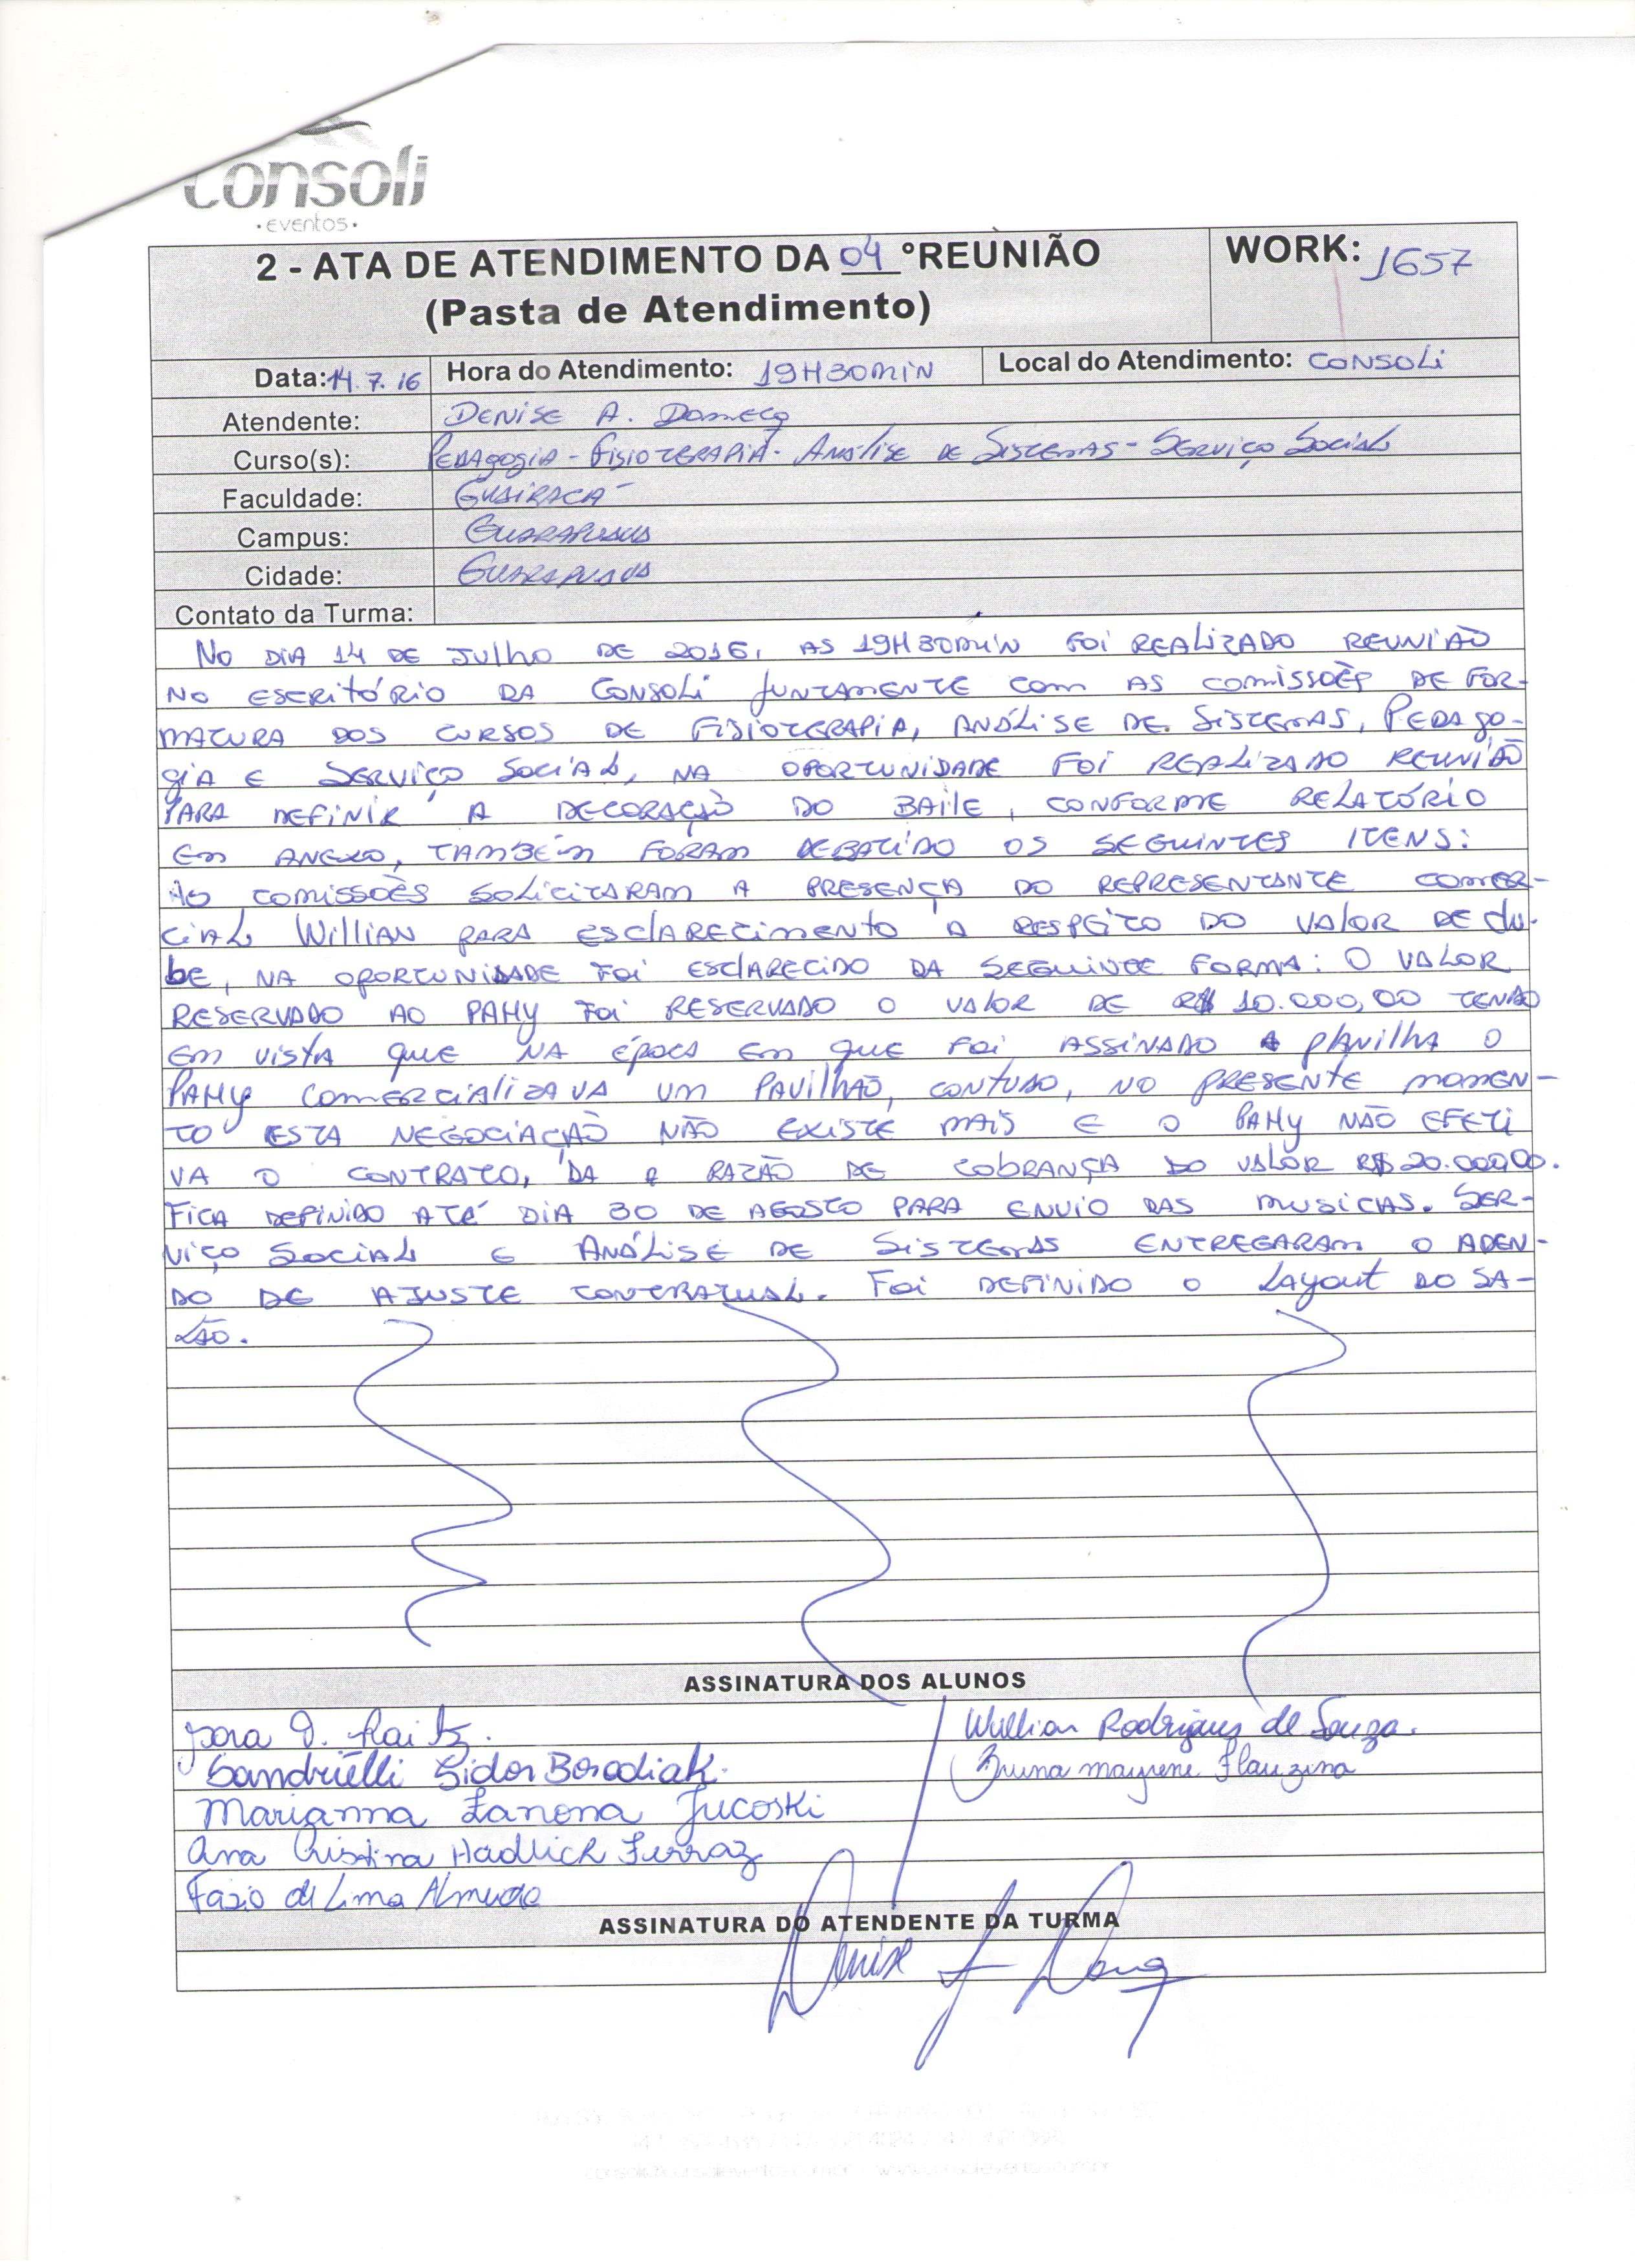 consoli
•eventos•
2 - ATA DE ATENDIMENTO DA 04 °REUNIÃO
(Pasta de Atendimento)
WORK: 1657
Data: 14.7.16 Hora do Atendimento: 19H30MIN Local do Atendimento: CONSOLI
Atendente: DENISE A.
Curso(s): PEDAGOGIA - FISIOTERAPIA - ANÁLISE DE SISTEMAS - SERVIÇO SOCIAL
Faculdade: GUAIRACÁ
Campus: GUARAPUAVA
Cidade: GUARAPUAVA
Contato da Turma:
NO DIA 14 DE JULHO DE 2016, AS 19H30MIN FOI REALIZADO REUNIÃO
NO ESCRITÓRIO DA CONSOLI JUNTAMENTE COM AS COMISSÕES DE FOR-
MATURA DOS CURSOS DE FISIOTERAPIA, ANÁLISE DE SISTEMAS, PEDAGO-
GIA E SERVIÇO SOCIAL, NA OPORTUNIDADE FOI REALIZADO REUNIÃO
PARA DEFINIR A DECORAÇÃO DO BAILE, CONFORME RELATÓRIO
EM ANEXO, TAMBÉM FORAM DEBATIDO OS SEGUINTES ITENS:
AS COMISSÕES SOLICITARAM A PRESENÇA DO REPRESENTANTE COMER-
CIAL WILLIAN PARA ESCLARECIMENTO A RESPEITO DO VALOR DE CLU-
BE, NA OPORTUNIDADE FOI ESCLARECIDO DA SEGUINTE FORMA: O VALOR
RESERVADO AO PAHY FOI RESERVADO O VALOR DE R$ 10.000,00 TENDO
EM VISTA QUE NA ÉPOCA EM QUE FOI ASSINADO A PLANILHA O
PAHY COMERCIALIZAVA UM PAVILHÃO, CONTUDO, NO PRESENTE MOMEN-
TO ESTA NEGOCIAÇÃO NÃO EXISTE MAIS E O PAHY NÃO EFETI
VA O CONTRATO, DA A RAZÃO DE COBRANÇA DO VALOR R$ 20.000,00.
FICA DEFINIDO ATÉ DIA 30 DE AGOSTO PARA ENVIO DAS MUSICAS. SER-
VIÇO SOCIAL E ANÁLISE DE SISTEMAS ENTREGARAM O ADEN-
DO DE AJUSTE CONTRATUAL. FOI DEFINIDO O LAYOUT DO SA-
LÃO.
ASSINATURA DOS ALUNOS
Willian Rodrigues de Souza.
Sandrielli Sidor Borodiak.
Bruna mayrene Flauzina
Marianna Zanona Jucoski
Ana Cristina Hadlich Ferraz
de Lima Almeida
ASSINATURA DO ATENDENTE DA TURMA
Denise